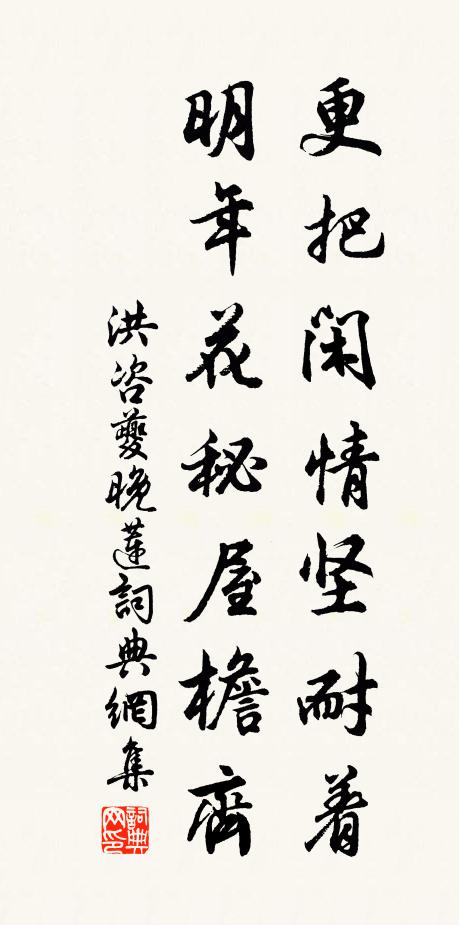 更把闲情坚耐着
明年花秘屋檐齊
洪咨夔晚蓮詞典網集
詞典网印